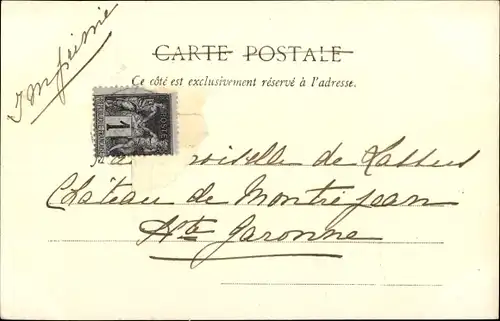 Imprimé
CARTE POSTALE
Ce côté est exclusivement réservé à l'adresse.
POSTE
1
de Lassus
Château de Montréjeau
Hte Garonne